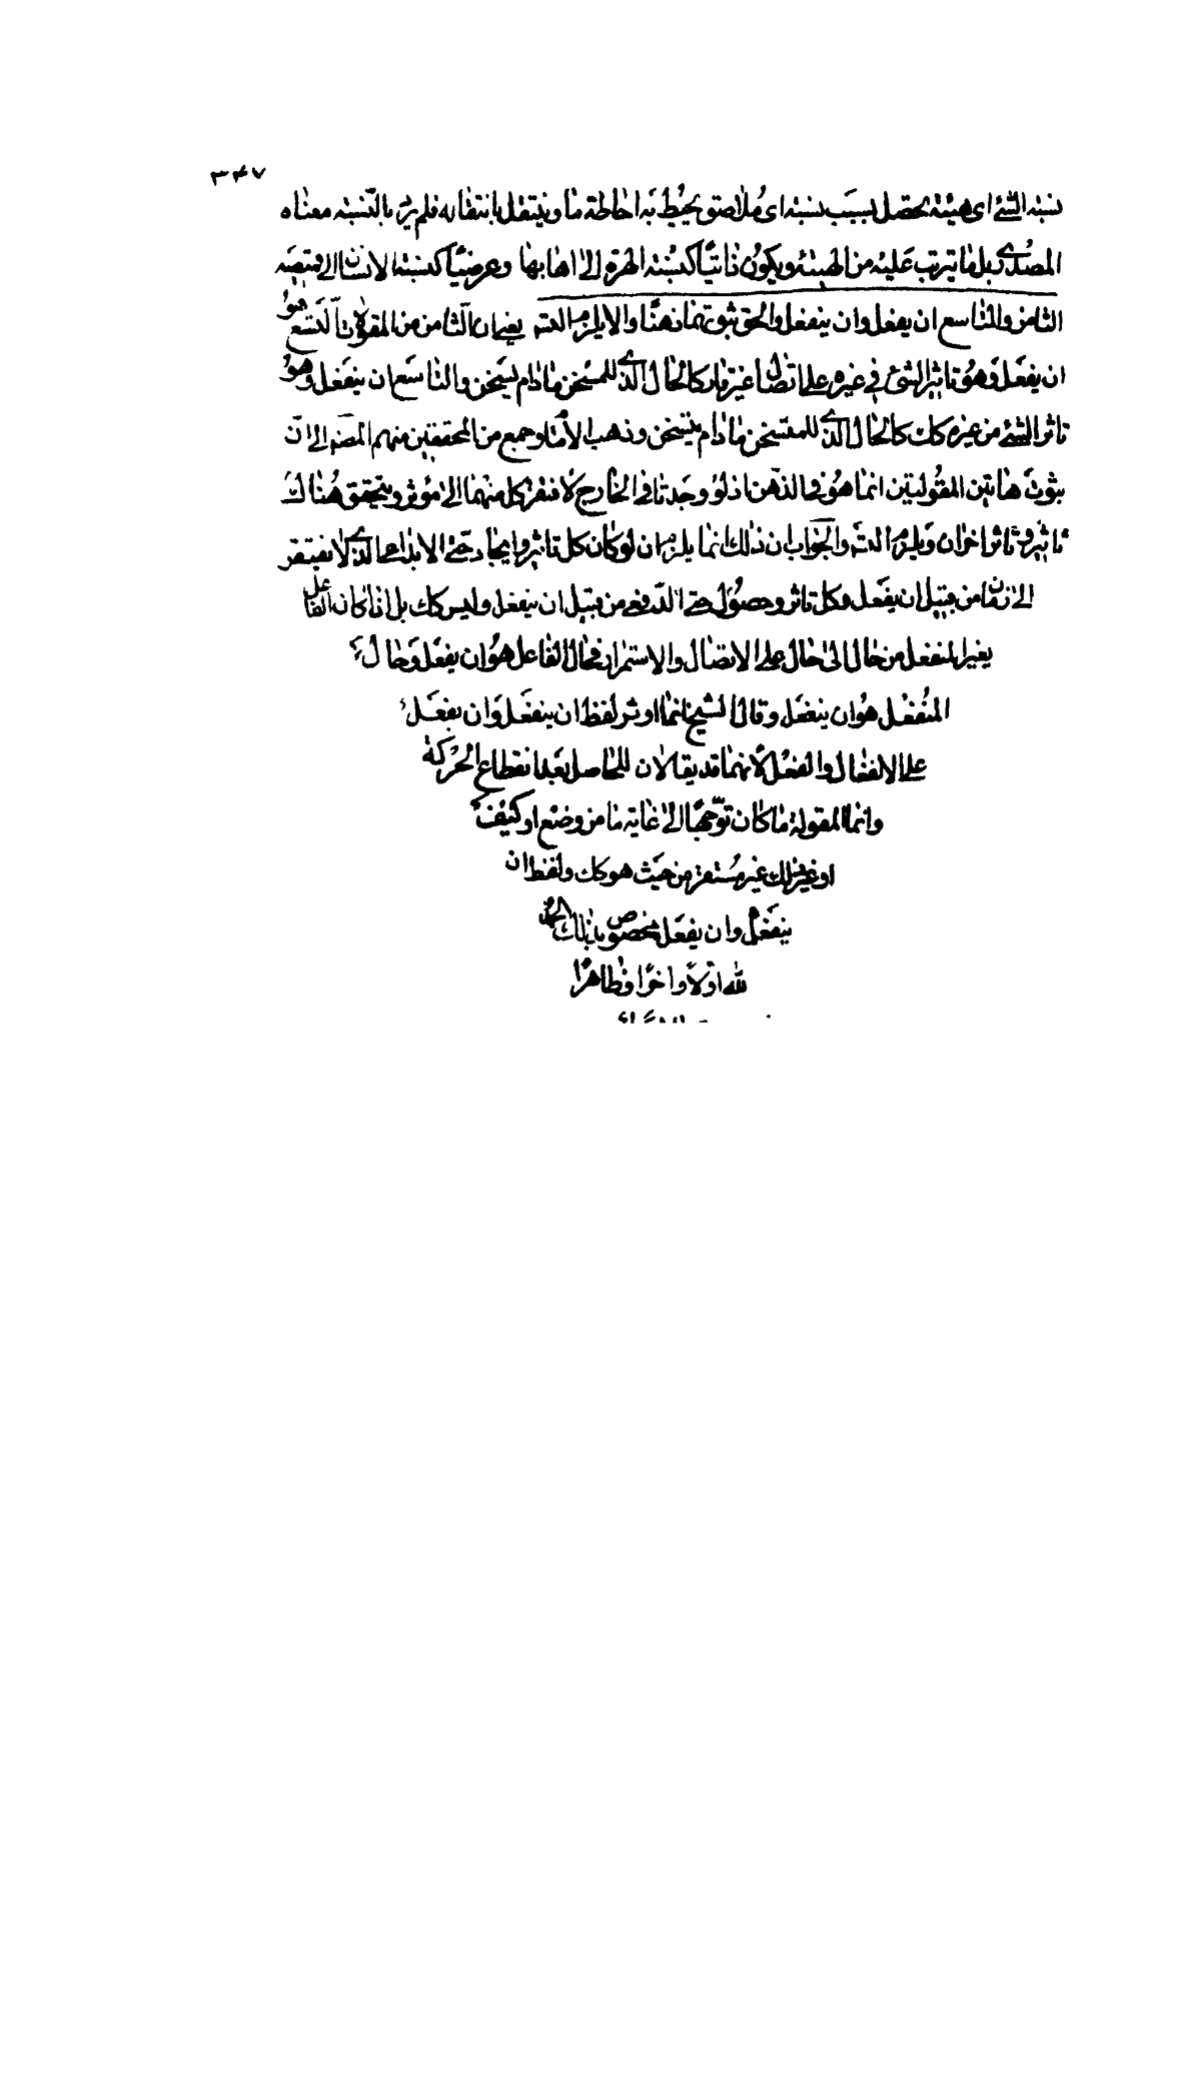 ٣٤٧
نسبة الشئ اى هيئة تحصل بسبب نسبة اى ملاصق يحيط به احاطة ما و ينتقل بانتقاله فلم يرد بالنسبة معناه
المصدرى بل ما يترتب عليه من الهيئة ويكون ذاتيا كنسبة الهرة الى اهابها وعرضيا كنسبة الانسان الى قميصه
الثامن والتاسع ان يفعل وان ينفعل والحق ثبوتهما ذهنا والا يلزم التسه يعنى ان الثامن من المقولات التسع هو
ان يفعل وهو تاثير الشئ فى غيره على اتصال غير قار كالحال الذى للمسخن ما دام يسخن والتاسع ان ينفعل وهو
تاثر الشئ من غيره كك كالحال الذى للمتسخن ما دام يتسخن وذهب الامام وجمع من المحققين منهم المصنه الى ان
ثبوت هاتين المقولتين انما هو فى الذهن اذ لو وجدتا فى الخارج لافتقر كل منهما الى مؤثر ويتحقق هناك
تاثير و تاثر اخران ويلزم التسه والجواب ان ذلك انما يلزم ان لو كان كل تاثير وايجاد حتى الابداعى الذى لا يفتقر
الى زمان من قبيل ان يفعل وكل تاثر وحصول حتى الدفعى من قبيل ان ينفعل وليس كك بل اذا كان الفاعل
يغير المنفعل من حال الى حال على الاتصال والاستمرار فحال الفاعل هو ان يفعل وحال
المنفعل هو ان ينفعل وقال الشيخ انما اوثر لفظ ان ينفعل وان يفعل
على الانفعال والفعل لانهما قد يقالان للحاصل بعد انقطاع الحركة
وانما المقولة ما كان توجها الى غاية ما من وضع او كيف
او غير ذلك غير مستقر من حيث هو كك ولفظ ان
ينفعل وان يفعل مخصوص بذلك الحمد
لله اولا واخرا وظاهرا